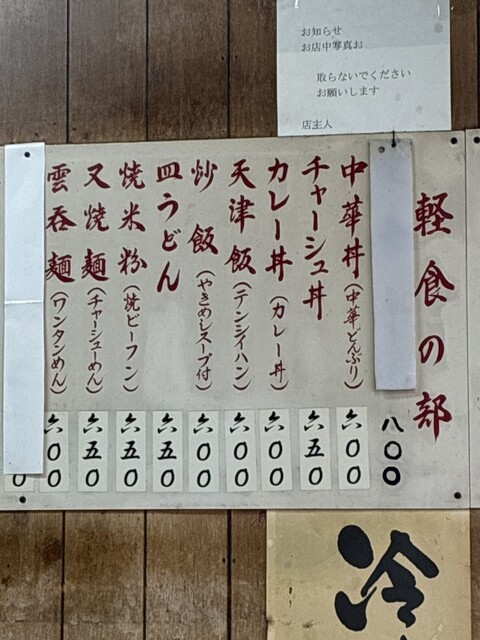 お知らせ
お店中写真お
取らないでください
お願いします
店主人
軽食の部
八〇〇
中華丼(中華どんぶり) 六〇〇
チャーシュ丼 六五〇
カレー丼(カレー丼) 六〇〇
天津飯(テンシンハン) 六〇〇
炒飯(やきめしスープ付) 六〇〇
皿うどん 六五〇
焼米粉(焼ビーフン) 六五〇
叉焼麺(チャーシューめん) 六五〇
雲呑麺(ワンタンめん) 六〇〇
〇
冷